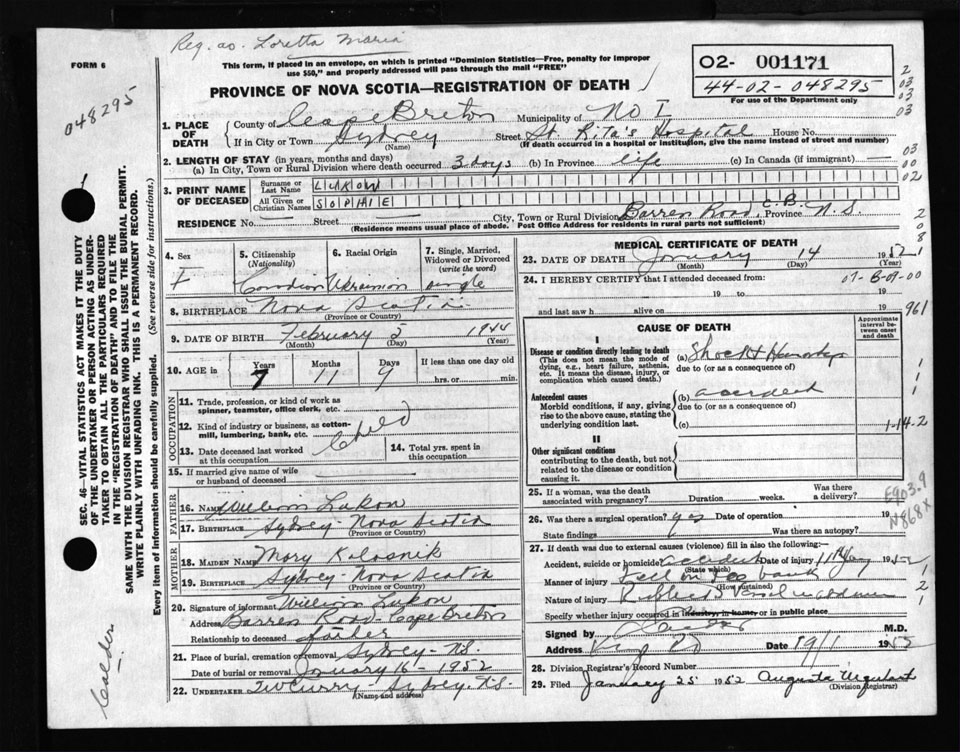 Reg. as. Loretta Maria
FORM 6
This form, if placed in an envelope, on which is printed "Dominion Statistics—Free, penalty for improper
use $50," and properly addressed will pass through the mail "FREE"
02- 001171
44-02-048295
For use of the Department only
048295
PROVINCE OF NOVA SCOTIA—REGISTRATION OF DEATH
1. PLACE OF DEATH County of Cape Breton Municipality of No I
If in City or Town Sydney Street St. Rita's Hospital House No.
(Name) (If death occurred in a hospital or institution, give the name instead of street and number)
2. LENGTH OF STAY (in years, months and days)
(a) In City, Town or Rural Division where death occurred 3 days (b) In Province life (c) In Canada (if immigrant) —
3. PRINT NAME OF DECEASED
Surname or Last Name LUKOW
All Given or Christian Names SOPHIE
RESIDENCE No. — Street — City, Town or Rural Division Barren Road, C.B. Province N.S.
(Residence means usual place of abode. Post Office Address for residents in rural parts not sufficient)
4. Sex 5. Citizenship (Nationality) 6. Racial Origin 7. Single, Married, Widowed or Divorced (write the word)
f Canadian Ukranian single
8. BIRTHPLACE Nova Scotia
(Province or Country)
9. DATE OF BIRTH February 5 1944
(Month) (Day) (Year)
10. AGE in Years Months Days If less than one day old
7 11 9 hrs. or min.
OCCUPATION
11. Trade, profession, or kind of work as spinner, teamster, office clerk, etc.
12. Kind of industry or business, as cotton-mill, lumbering, bank, etc.
Child
13. Date deceased last worked at this occupation
14. Total yrs. spent in this occupation
15. If married give name of wife or husband of deceased
FATHER
16. Name William Lukow
17. Birthplace Sydney - Nova Scotia
(Province or Country)
MOTHER
18. MAIDEN NAME Mary Kolosnik
19. BIRTHPLACE Sydney - Nova Scotia
(Province or Country)
20. Signature of informant William Lukow
Address Barren Road - Cape Breton
Relationship to deceased father
21. Place of burial, cremation or removal Sydney - N.S.
Date of burial or removal January 16 - 1952
22. UNDERTAKER Curry - Sydney, N.S.
(Name and address)
MEDICAL CERTIFICATE OF DEATH
23. DATE OF DEATH January 14 1952
(Month) (Day) (Year)
24. I HEREBY CERTIFY that I attended deceased from
19 to 19
and last saw h alive on 19
961
CAUSE OF DEATH
Approximate interval between onset and death
I
Disease or condition directly leading to death
(This does not mean the mode of dying, e.g., heart failure, asthenia, etc. It means the disease, injury, or complication which caused death.)
(a) Shock &
due to (or as a consequence of)
Antecedent causes
Morbid conditions, if any, giving rise to the above cause, stating the underlying condition last.
(b) accident
due to (or as a consequence of)
(c)
1-14-2
II
Other significant conditions
contributing to the death, but not related to the disease or condition causing it.
25. If a woman, was the death associated with pregnancy? Duration weeks. Was there a delivery?
E903.9
N868X
26. Was there a surgical operation? yes Date of operation 19
State findings Was there an autopsy?
27. If death was due to external causes (violence) fill in also the following:—
Accident, suicide or homicide? accident Date of injury 1952
(State which)
Manner of injury fell on ice bank
(How sustained)
Nature of injury
Specify whether injury occurred in industry, in home, or in public place
Signed by M.D.
Address Date 19/1 1952
28. Division Registrar's Record Number
29. Filed January 25 1952 Augusta Urquhart
(Division Registrar)
SEC. 46—VITAL STATISTICS ACT MAKES IT THE DUTY
OF THE UNDERTAKER OR PERSON ACTING AS UNDER-
TAKER TO OBTAIN ALL THE PARTICULARS REQUIRED
IN THE "REGISTRATION OF DEATH" AND TO FILE THE
SAME WITH THE DIVISION REGISTRAR WHO SHALL ISSUE THE BURIAL PERMIT.
WRITE PLAINLY WITH UNFADING INK. THIS IS A PERMANENT RECORD.
Every item of information should be carefully supplied. (See reverse side for instructions.)